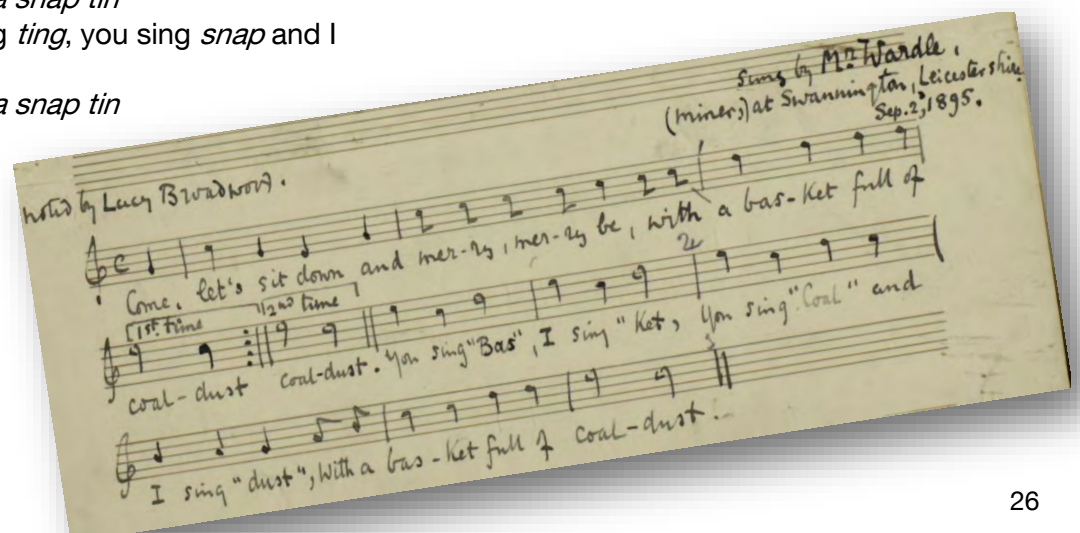 a snap tin
g ting, you sing snap and I
a snap tin
Sung by Mr. Wardle.
(miner,) at Swannington, Leicestershire
Sep. 2, 1895.
noted by Lucy Broadwood.
Come, let's sit down and mer-ry, mer-ry be, with a bas-ket full of
1st time 2nd time
coal-dust coal-dust. You sing "Bas", I sing "Ket, You sing "Coal" and
I sing "dust", With a bas-ket full of coal-dust.
26